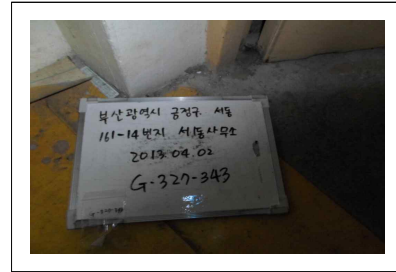 부산광역시 금정구 서동
161-14번지 서1동사무소
2013.04.02
G-327-343